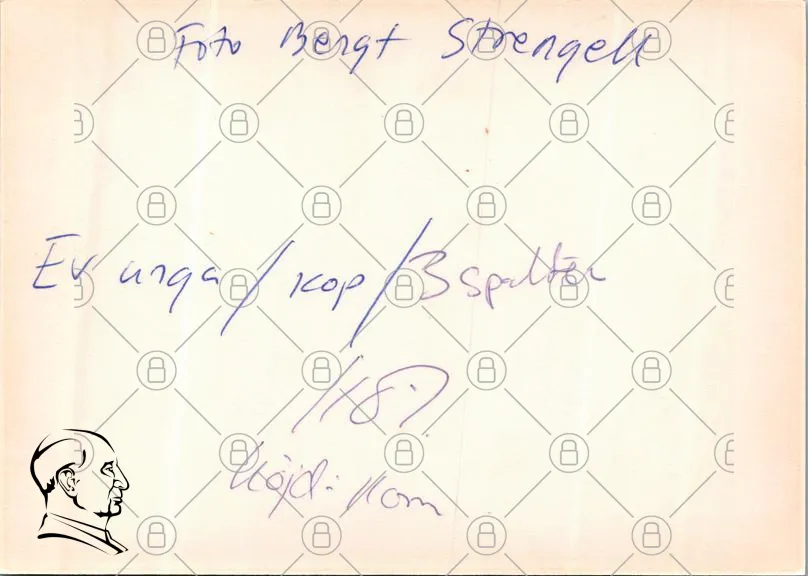 Foto Bengt Strengell
Ev unga / kop / 3 spalter
Höjd: